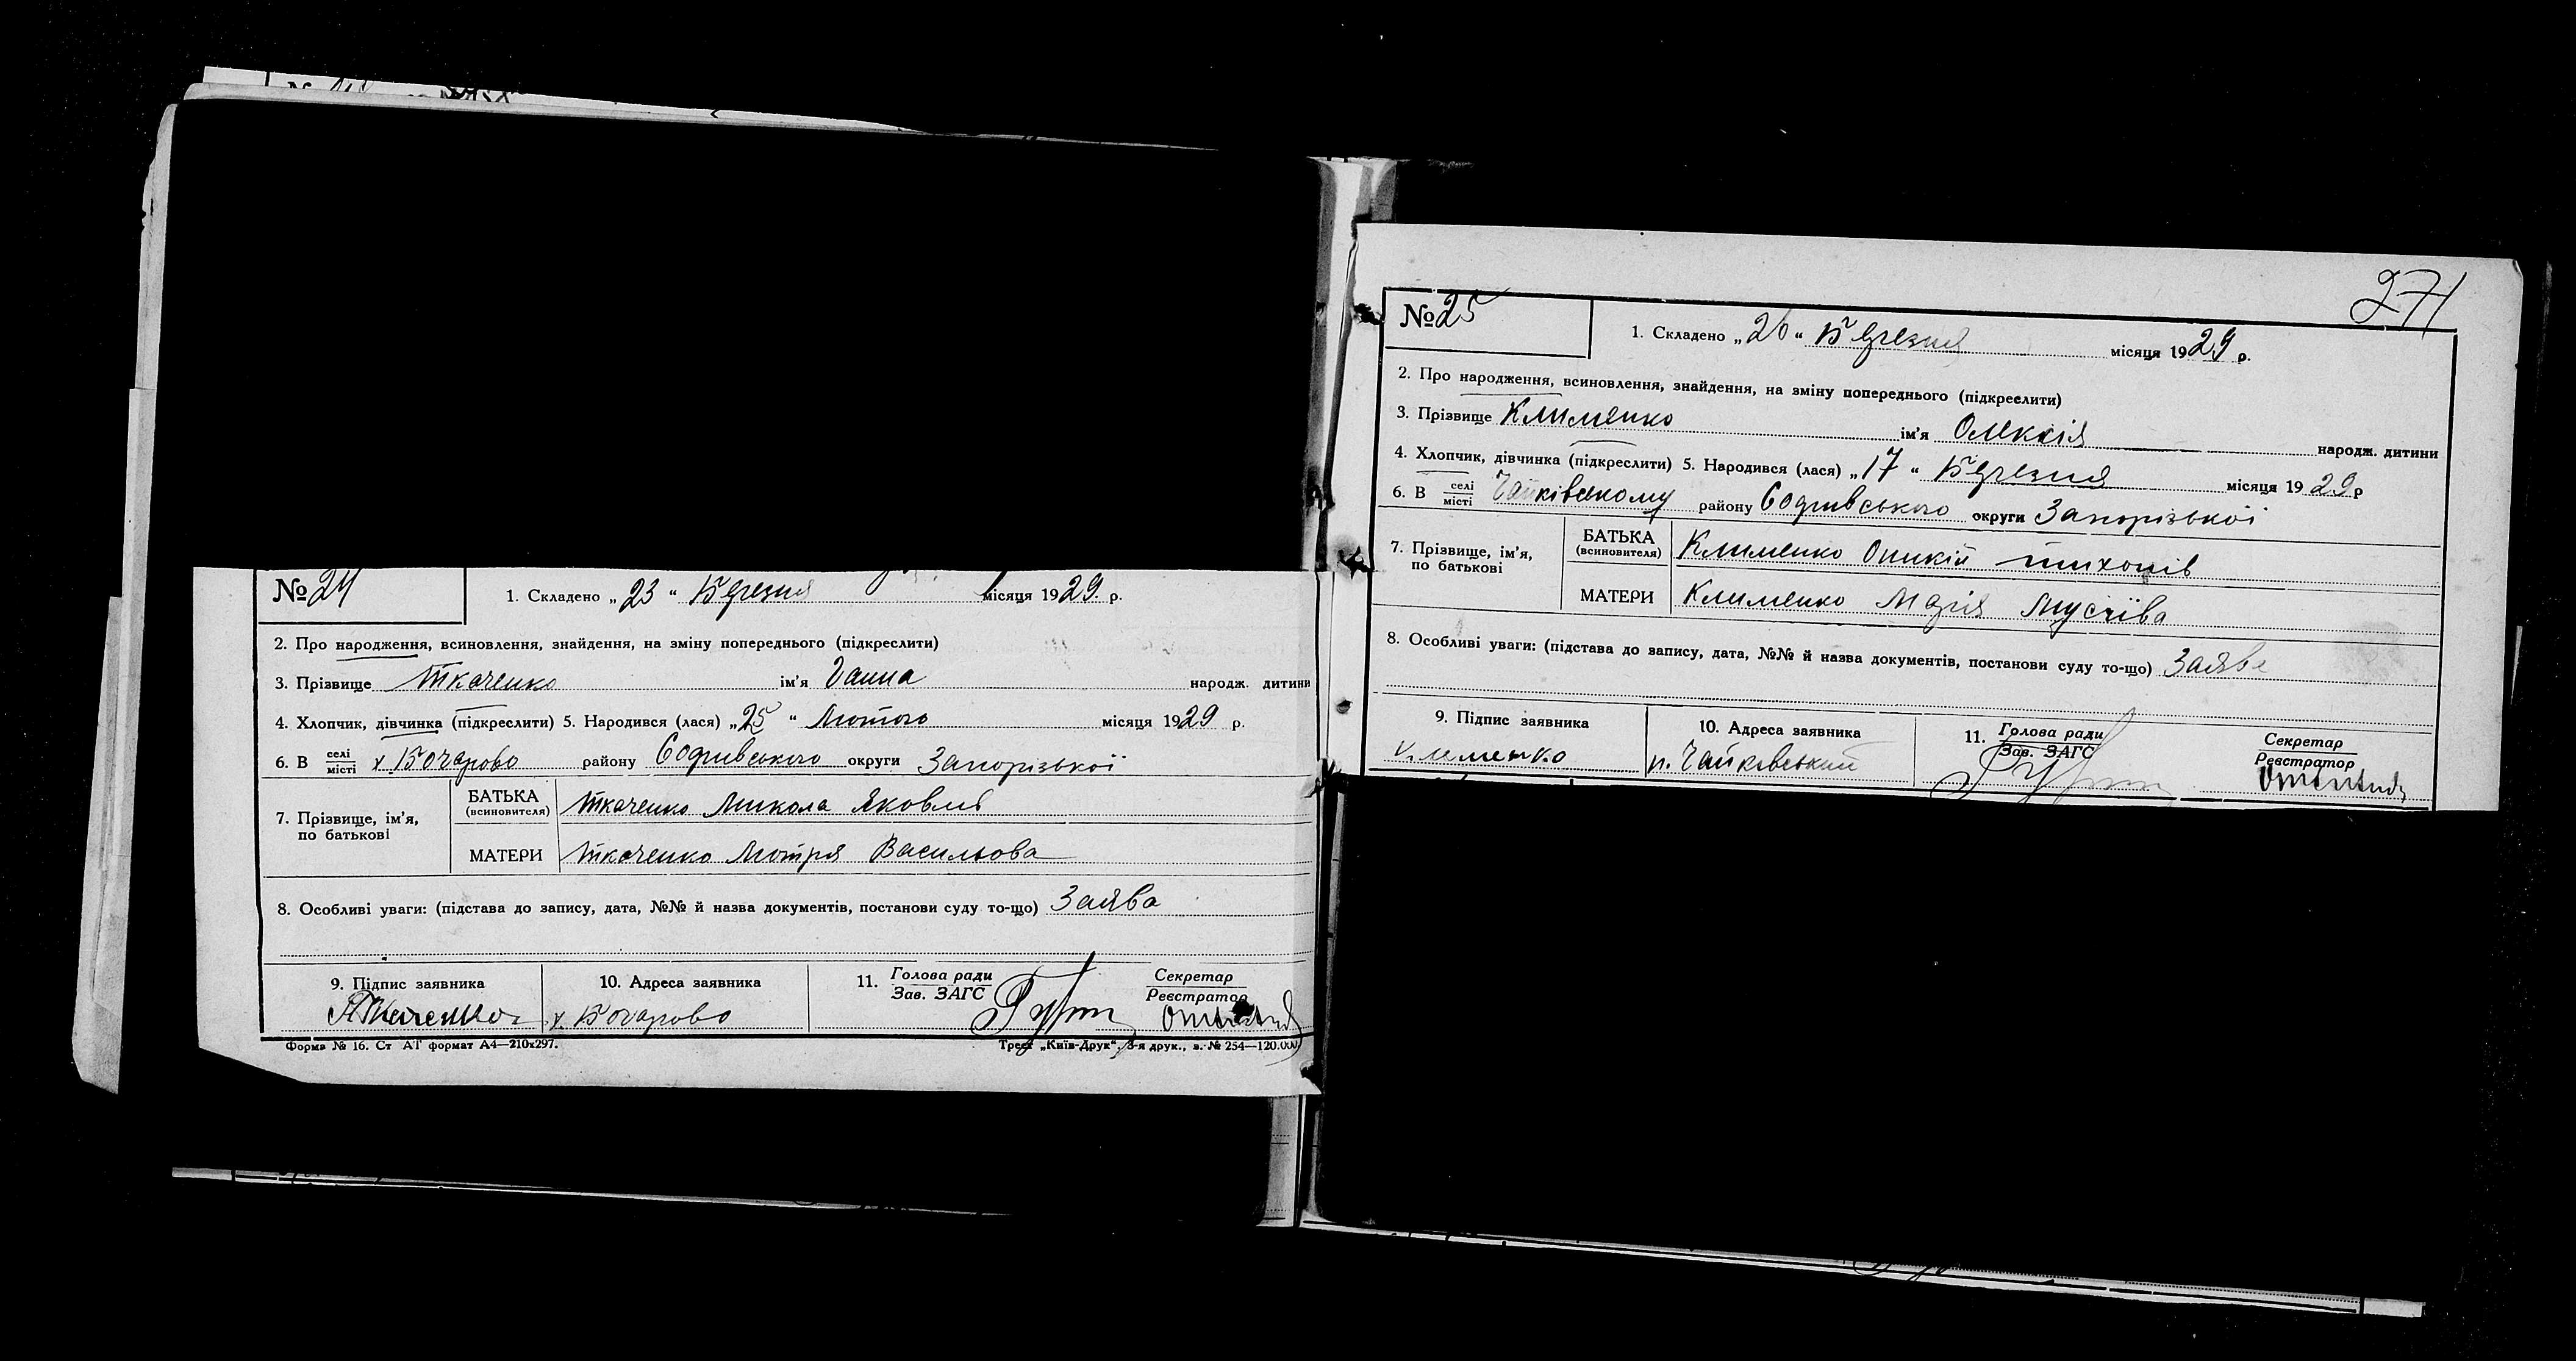 № 24
1. Складено „ 23 “ Березня місяця 1929. р.
2. Про народження, всиновлення, знайдення, на зміну попереднього (підкреслити)
3. Прізвище Ткаченко ім'я Ганна народж. дитини
4. Хлопчик, дівчинка (підкреслити) 5. Народився (лася) „ 25 “ Лютого місяця 1929 р.
6. В селі місті х. Бочарово району Софиївського округи Запорізької
7. Прізвище, ім'я, по батькові
БАТЬКА (всиновителя) Ткаченко Микола Яковлів
МАТЕРИ Ткаченко Мотря Васильова
8. Особливі уваги: (підстава до запису, дата, №№ й назва документів, постанови суду то-що) Заява
9. Підпис заявника 10. Адреса заявника 11. Голова ради Секретар
Зав. ЗАГС Реєстратор
Ткаченко х. Бочарово
Форма № 16. Ст АТ формат А4—210х297. Трест „Київ-Друк“, 3-я друк., з. № 254—120.000
271
№ 25
1. Складено „ 26 “ Березня місяця 1929 р.
2. Про народження, всиновлення, знайдення, на зміну попереднього (підкреслити)
3. Прізвище Клименко ім'я Олексія народж. дитини
4. Хлопчик, дівчинка (підкреслити) 5. Народився (лася) „ 17 “ Березня місяця 1929 р
6. В селі місті Чайківському району Софиївського округи Запорізької
7. Прізвище, ім'я, по батькові
БАТЬКА (всиновителя) Клименко Тихонів
МАТЕРИ Клименко Марія Мусіїва
8. Особливі уваги: (підстава до запису, дата, №№ й назва документів, постанови суду то-що) Заява
9. Підпис заявника 10. Адреса заявника 11. Голова ради Секретар
Зав. ЗАГС Реєстратор
Клеменко п. Чайківський